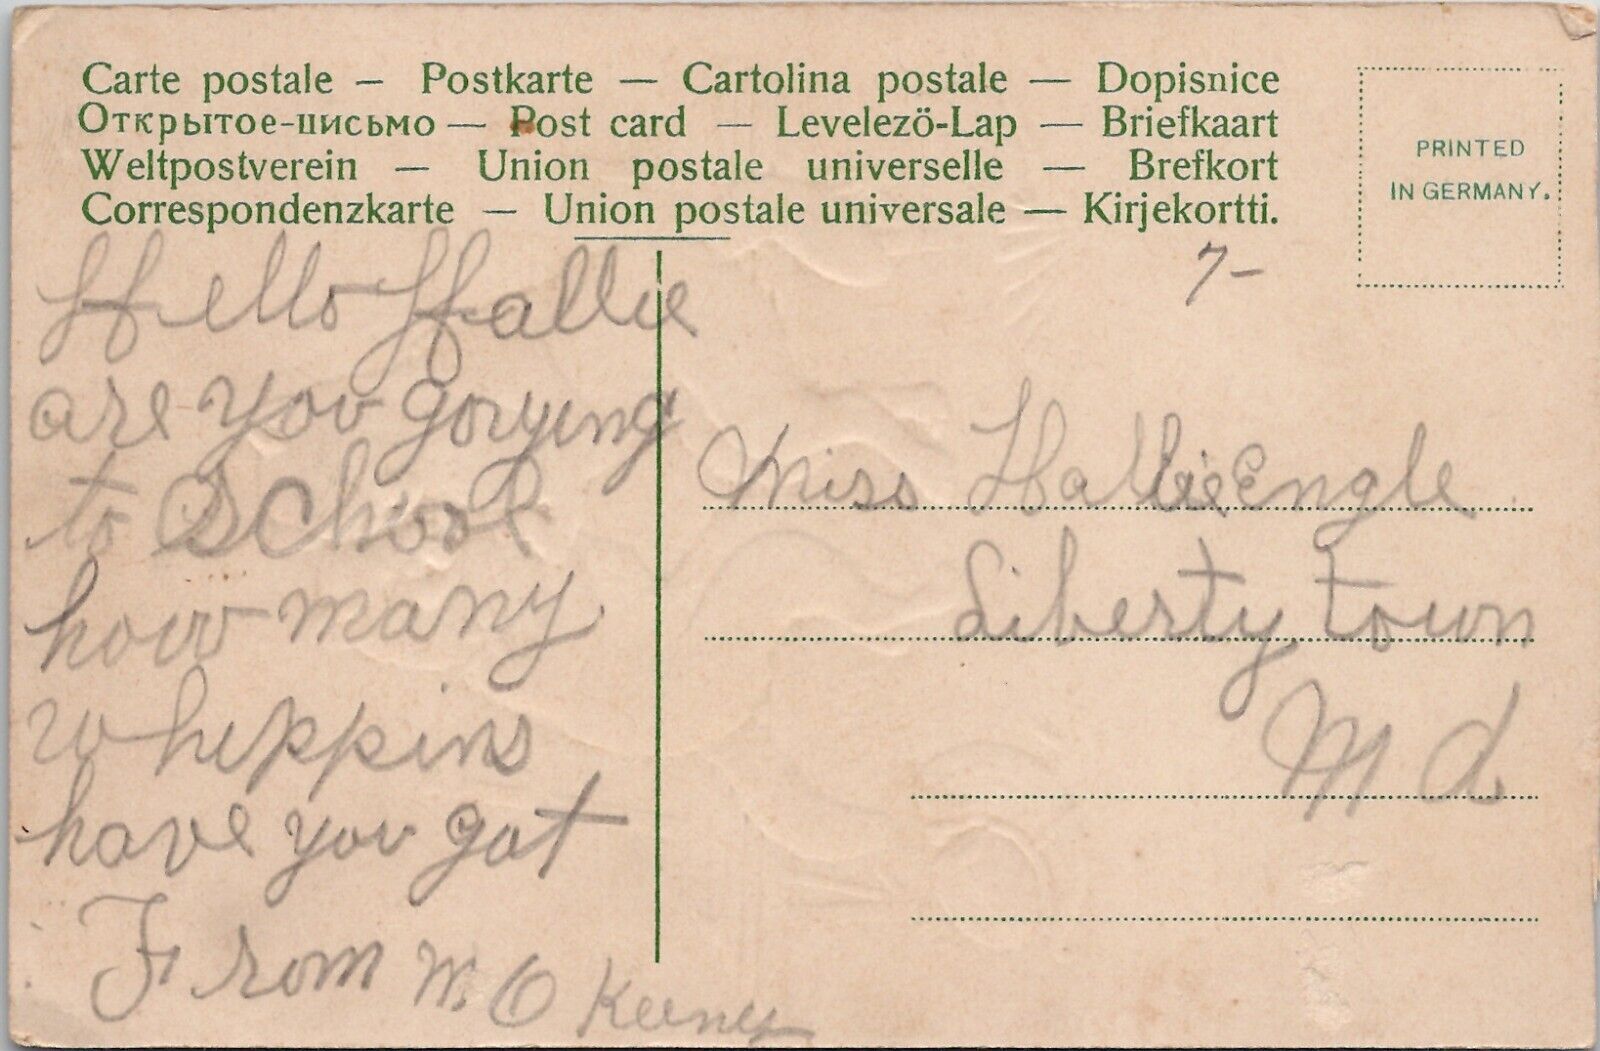 Carte postale — Postkarte — Cartolina postale — Dopisnice
Открытое-письмо — Post card — Levelezö-Lap — Briefkaart
Weltpostverein — Union postale universelle — Brefkort
Correspondenzkarte — Union postale universale — Kirjekortti.
PRINTED
IN GERMANY.
7-
Hello Hallie
are you goiyeng
to School
how many
wheppins
have you got
From W. O Keeney
Miss Hallie Engle
Liberty town
Md